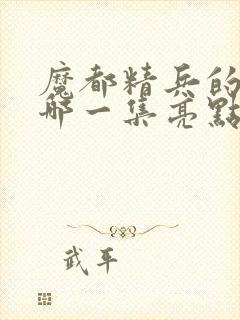 魔都精兵的
哪一集亮點
武平